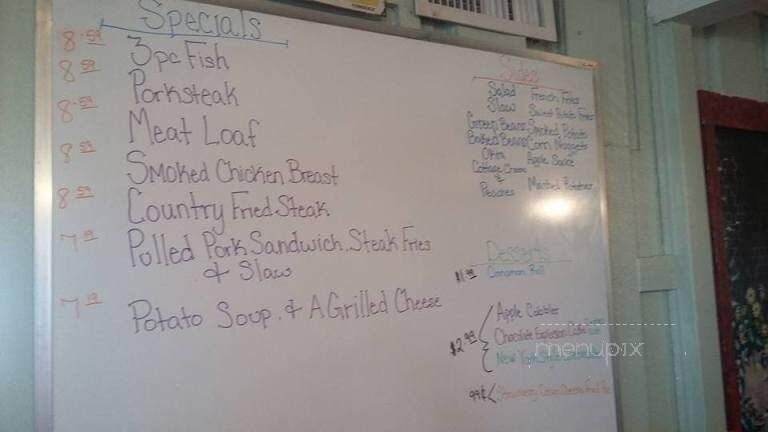 Specials
8.59 3pc Fish
8.59 Porksteak
8.59 Meat Loaf
8.59 Smoked Chicken Breast
8.59 Country Fried Steak
7.19 Pulled Pork Sandwich, Steak Fries
& Slaw
7.19 Potato Soup. & A Grilled Cheese
Sides
Salad French Fries
Slaw Sweet Potato Fries
Green Beans Smoked Potato
Baked Beans Corn Nuggets
Okra Apple Sauce
Cottage Cheese
&
Peaches Mashed Potatoes
Desserts
$1.99 Cinnamon Roll
Apple Cobbler
$2.99 Chocolate Explosion Cake
New York
99¢ Strawberry
menupix